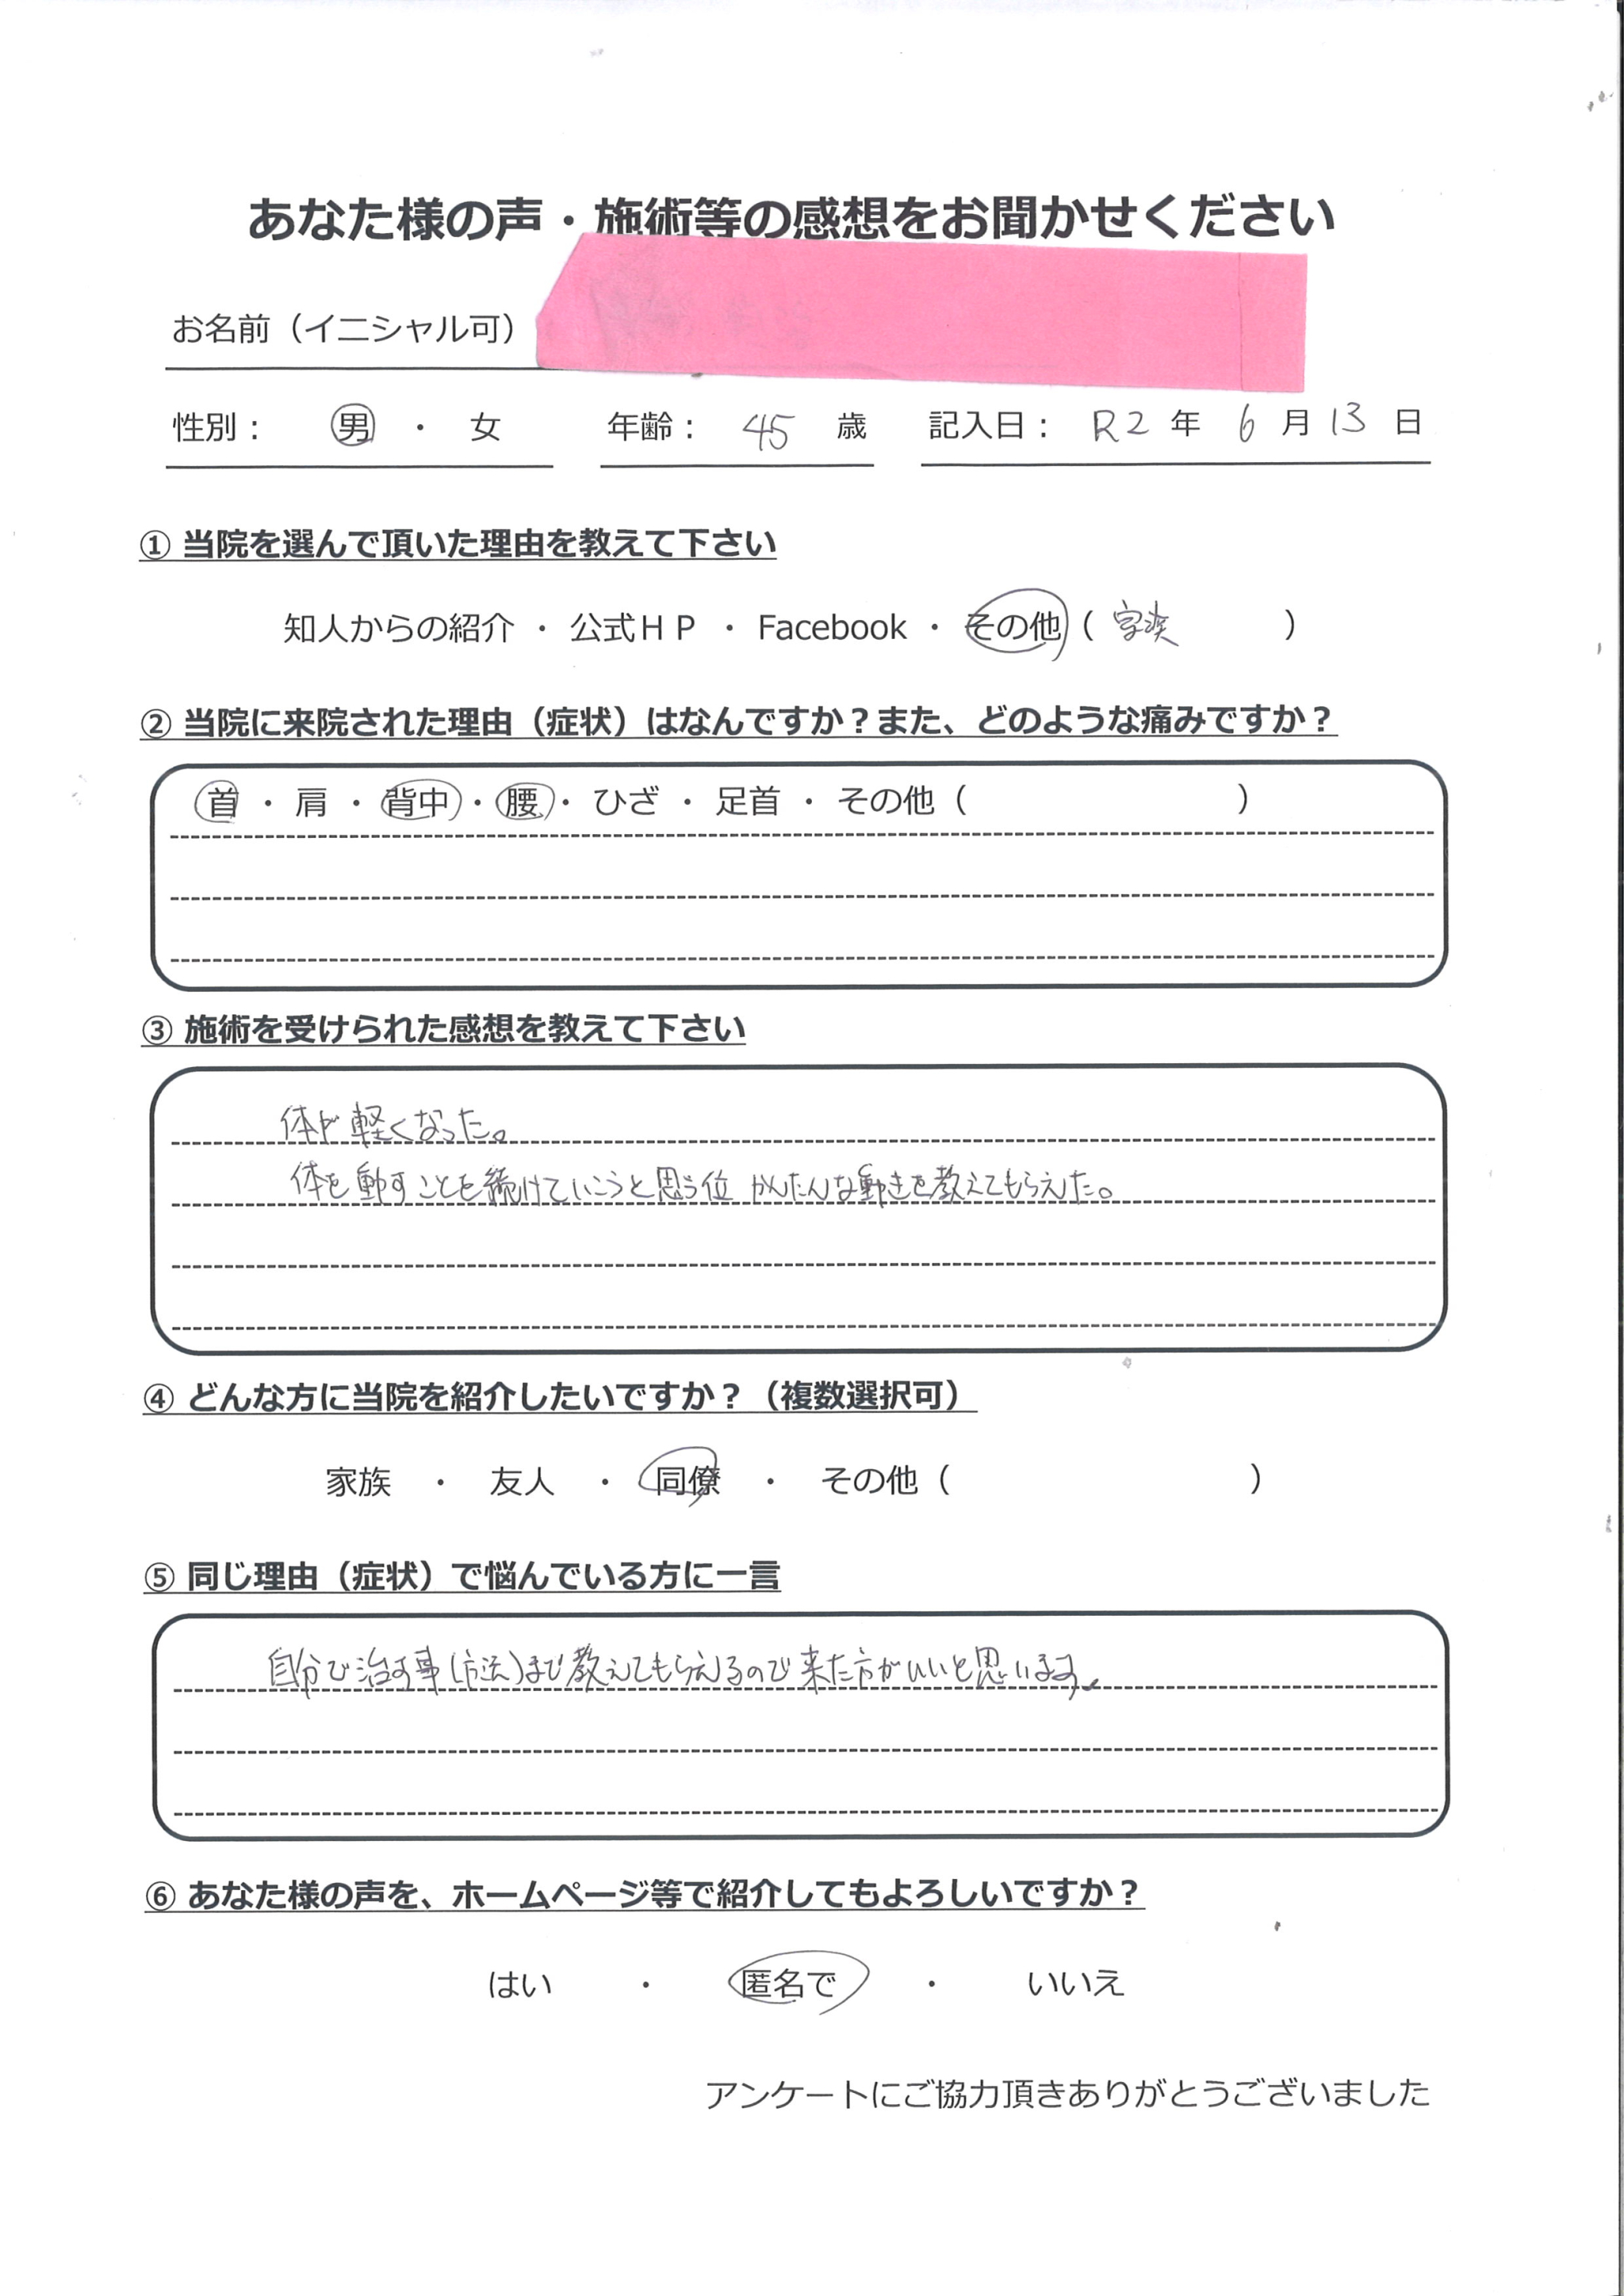 あなた様の声・施術等の感想をお聞かせください
お名前（イニシャル可）
性別： 男 ・ 女 年齢： 45 歳 記入日： R2 年 6 月 13 日
① 当院を選んで頂いた理由を教えて下さい
知人からの紹介 ・ 公式ＨＰ ・ Facebook ・ その他（ ）
② 当院に来院された理由（症状）はなんですか？また、どのような痛みですか？
首 ・ 肩 ・ 背中 ・ 腰 ・ ひざ ・ 足首 ・ その他（ ）
③ 施術を受けられた感想を教えて下さい
体が軽くなった。
体を動すことを続けていこうと思う位 かんたんな動きを教えてもらえた。
④ どんな方に当院を紹介したいですか？（複数選択可）
家族 ・ 友人 ・ 同僚 ・ その他（ ）
⑤ 同じ理由（症状）で悩んでいる方に一言
自分で治す事(方法)まで教えてもらえるので来た方がいいと思います。
⑥ あなた様の声を、ホームページ等で紹介してもよろしいですか？
はい ・ 匿名で ・ いいえ
アンケートにご協力頂きありがとうございました